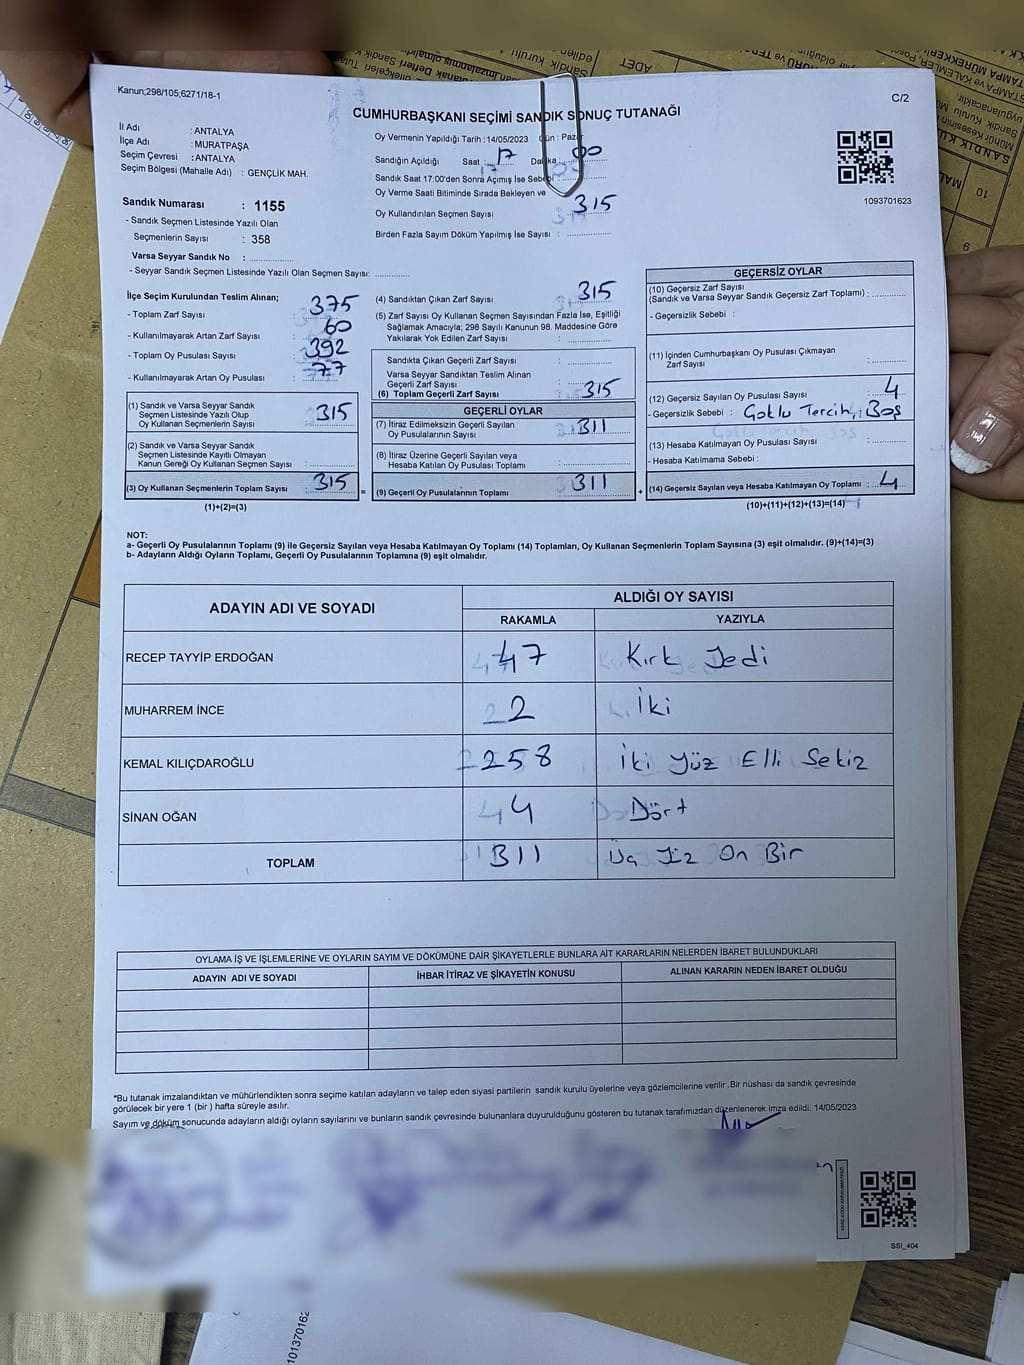 Kanun;298/105;6271/18-1
C/2
CUMHURBAŞKANI SEÇİMİ SANDIK SONUÇ TUTANAĞI
İl Adı : ANTALYA
İlçe Adı : MURATPAŞA
Seçim Çevresi : ANTALYA
Seçim Bölgesi (Mahalle Adı) : GENÇLİK MAH.
Oy Vermenin Yapıldığı Tarih : 14/05/2023 Gün : Pazar
Sandığın Açıldığı Saat : 17 Dakika : 00
Sandık Saat 17:00'den Sonra Açımış İse Sebebi
Oy Verme Saati Bitiminde Sırada Bekleyen ve
Oy Kullandırılan Seçmen Sayısı 315
Birden Fazla Sayım Döküm Yapılmış İse Sayısı :
1093701623
Sandık Numarası : 1155
- Sandık Seçmen Listesinde Yazılı Olan
Seçmenlerin Sayısı : 358
Varsa Seyyar Sandık No :
- Seyyar Sandık Seçmen Listesinde Yazılı Olan Seçmen Sayısı:
İlçe Seçim Kurulundan Teslim Alınan;
- Toplam Zarf Sayısı : 375
- Kullanılmayarak Artan Zarf Sayısı : 60
- Toplam Oy Pusulası Sayısı : 392
- Kullanılmayarak Artan Oy Pusulası : 77
(1) Sandık ve Varsa Seyyar Sandık
Seçmen Listesinde Yazılı Olup
Oy Kullanan Seçmenlerin Sayısı : 315
(2) Sandık ve Varsa Seyyar Sandık
Seçmen Listesinde Kayıtlı Olmayan
Kanun Gereği Oy Kullanan Seçmen Sayısı :
(3) Oy Kullanan Seçmenlerin Toplam Sayısı : 315
(1)+(2)=(3)
(4) Sandıktan Çıkan Zarf Sayısı : 315
(5) Zarf Sayısı Oy Kullanan Seçmen Sayısından Fazla İse, Eşitliği
Sağlamak Amacıyla; 298 Sayılı Kanunun 98. Maddesine Göre
Yakılarak Yok Edilen Zarf Sayısı :
Sandıkta Çıkan Geçerli Zarf Sayısı :
Varsa Seyyar Sandıktan Teslim Alınan
Geçerli Zarf Sayısı
(6) Toplam Geçerli Zarf Sayısı : 315
GEÇERLİ OYLAR
(7) İtiraz Edilmeksizin Geçerli Sayılan
Oy Pusulalarının Sayısı : 311
(8) İtiraz Üzerine Geçerli Sayılan veya
Hesaba Katılan Oy Pusulası Toplamı :
= (9) Geçerli Oy Pusulalarının Toplamı : 311 +
GEÇERSİZ OYLAR
(10) Geçersiz Zarf Sayısı
(Sandık ve Varsa Seyyar Sandık Geçersiz Zarf Toplamı) :
- Geçersizlik Sebebi :
(11) İçinden Cumhurbaşkanı Oy Pusulası Çıkmayan
Zarf Sayısı :
(12) Geçersiz Sayılan Oy Pusulası Sayısı : 4
- Geçersizlik Sebebi : Çoklu Tercih, Boş
(13) Hesaba Katılmayan Oy Pusulası Sayısı :
- Hesaba Katılmama Sebebi :
(14) Geçersiz Sayılan veya Hesaba Katılmayan Oy Toplamı : 4
(10)+(11)+(12)+(13)=(14)
NOT:
a- Geçerli Oy Pusulalarının Toplamı (9) ile Geçersiz Sayılan veya Hesaba Katılmayan Oy Toplamı (14) Toplamları, Oy Kullanan Seçmenlerin Toplam Sayısına (3) eşit olmalıdır. (9)+(14)=(3)
b- Adayların Aldığı Oyların Toplamı, Geçerli Oy Pusulalarının Toplamına (9) eşit olmalıdır.
ADAYIN ADI VE SOYADI ALDIĞI OY SAYISI
RAKAMLA YAZIYLA
RECEP TAYYİP ERDOĞAN 47 Kırk Yedi
MUHARREM İNCE 2 İki
KEMAL KILIÇDAROĞLU 258 İki Yüz Elli Sekiz
SİNAN OĞAN 4 Dört
TOPLAM 311 Üç Yüz On Bir
OYLAMA İŞ VE İŞLEMLERİNE VE OYLARIN SAYIM VE DÖKÜMÜNE DAİR ŞİKAYETLERLE BUNLARA AİT KARARLARIN NELERDEN İBARET BULUNDUKLARI
ADAYIN ADI VE SOYADI İHBAR İTİRAZ VE ŞİKAYETİN KONUSU ALINAN KARARIN NEDEN İBARET OLDUĞU
*Bu tutanak imzalandıktan ve mühürlendikten sonra seçime katılan adayların ve talep eden siyasi partilerin sandık kurulu üyelerine veya gözlemcilerine verilir .Bir nüshası da sandık çevresinde
görülecek bir yere 1 (bir ) hafta süreyle asılır.
Sayım ve döküm sonucunda adayların aldığı oyların sayılarını ve bunların sandık çevresinde bulunanlara duyurulduğunu gösteren bu tutanak tarafımızdan düzenlenerek imza edildi. 14/05/2023
SSI_404